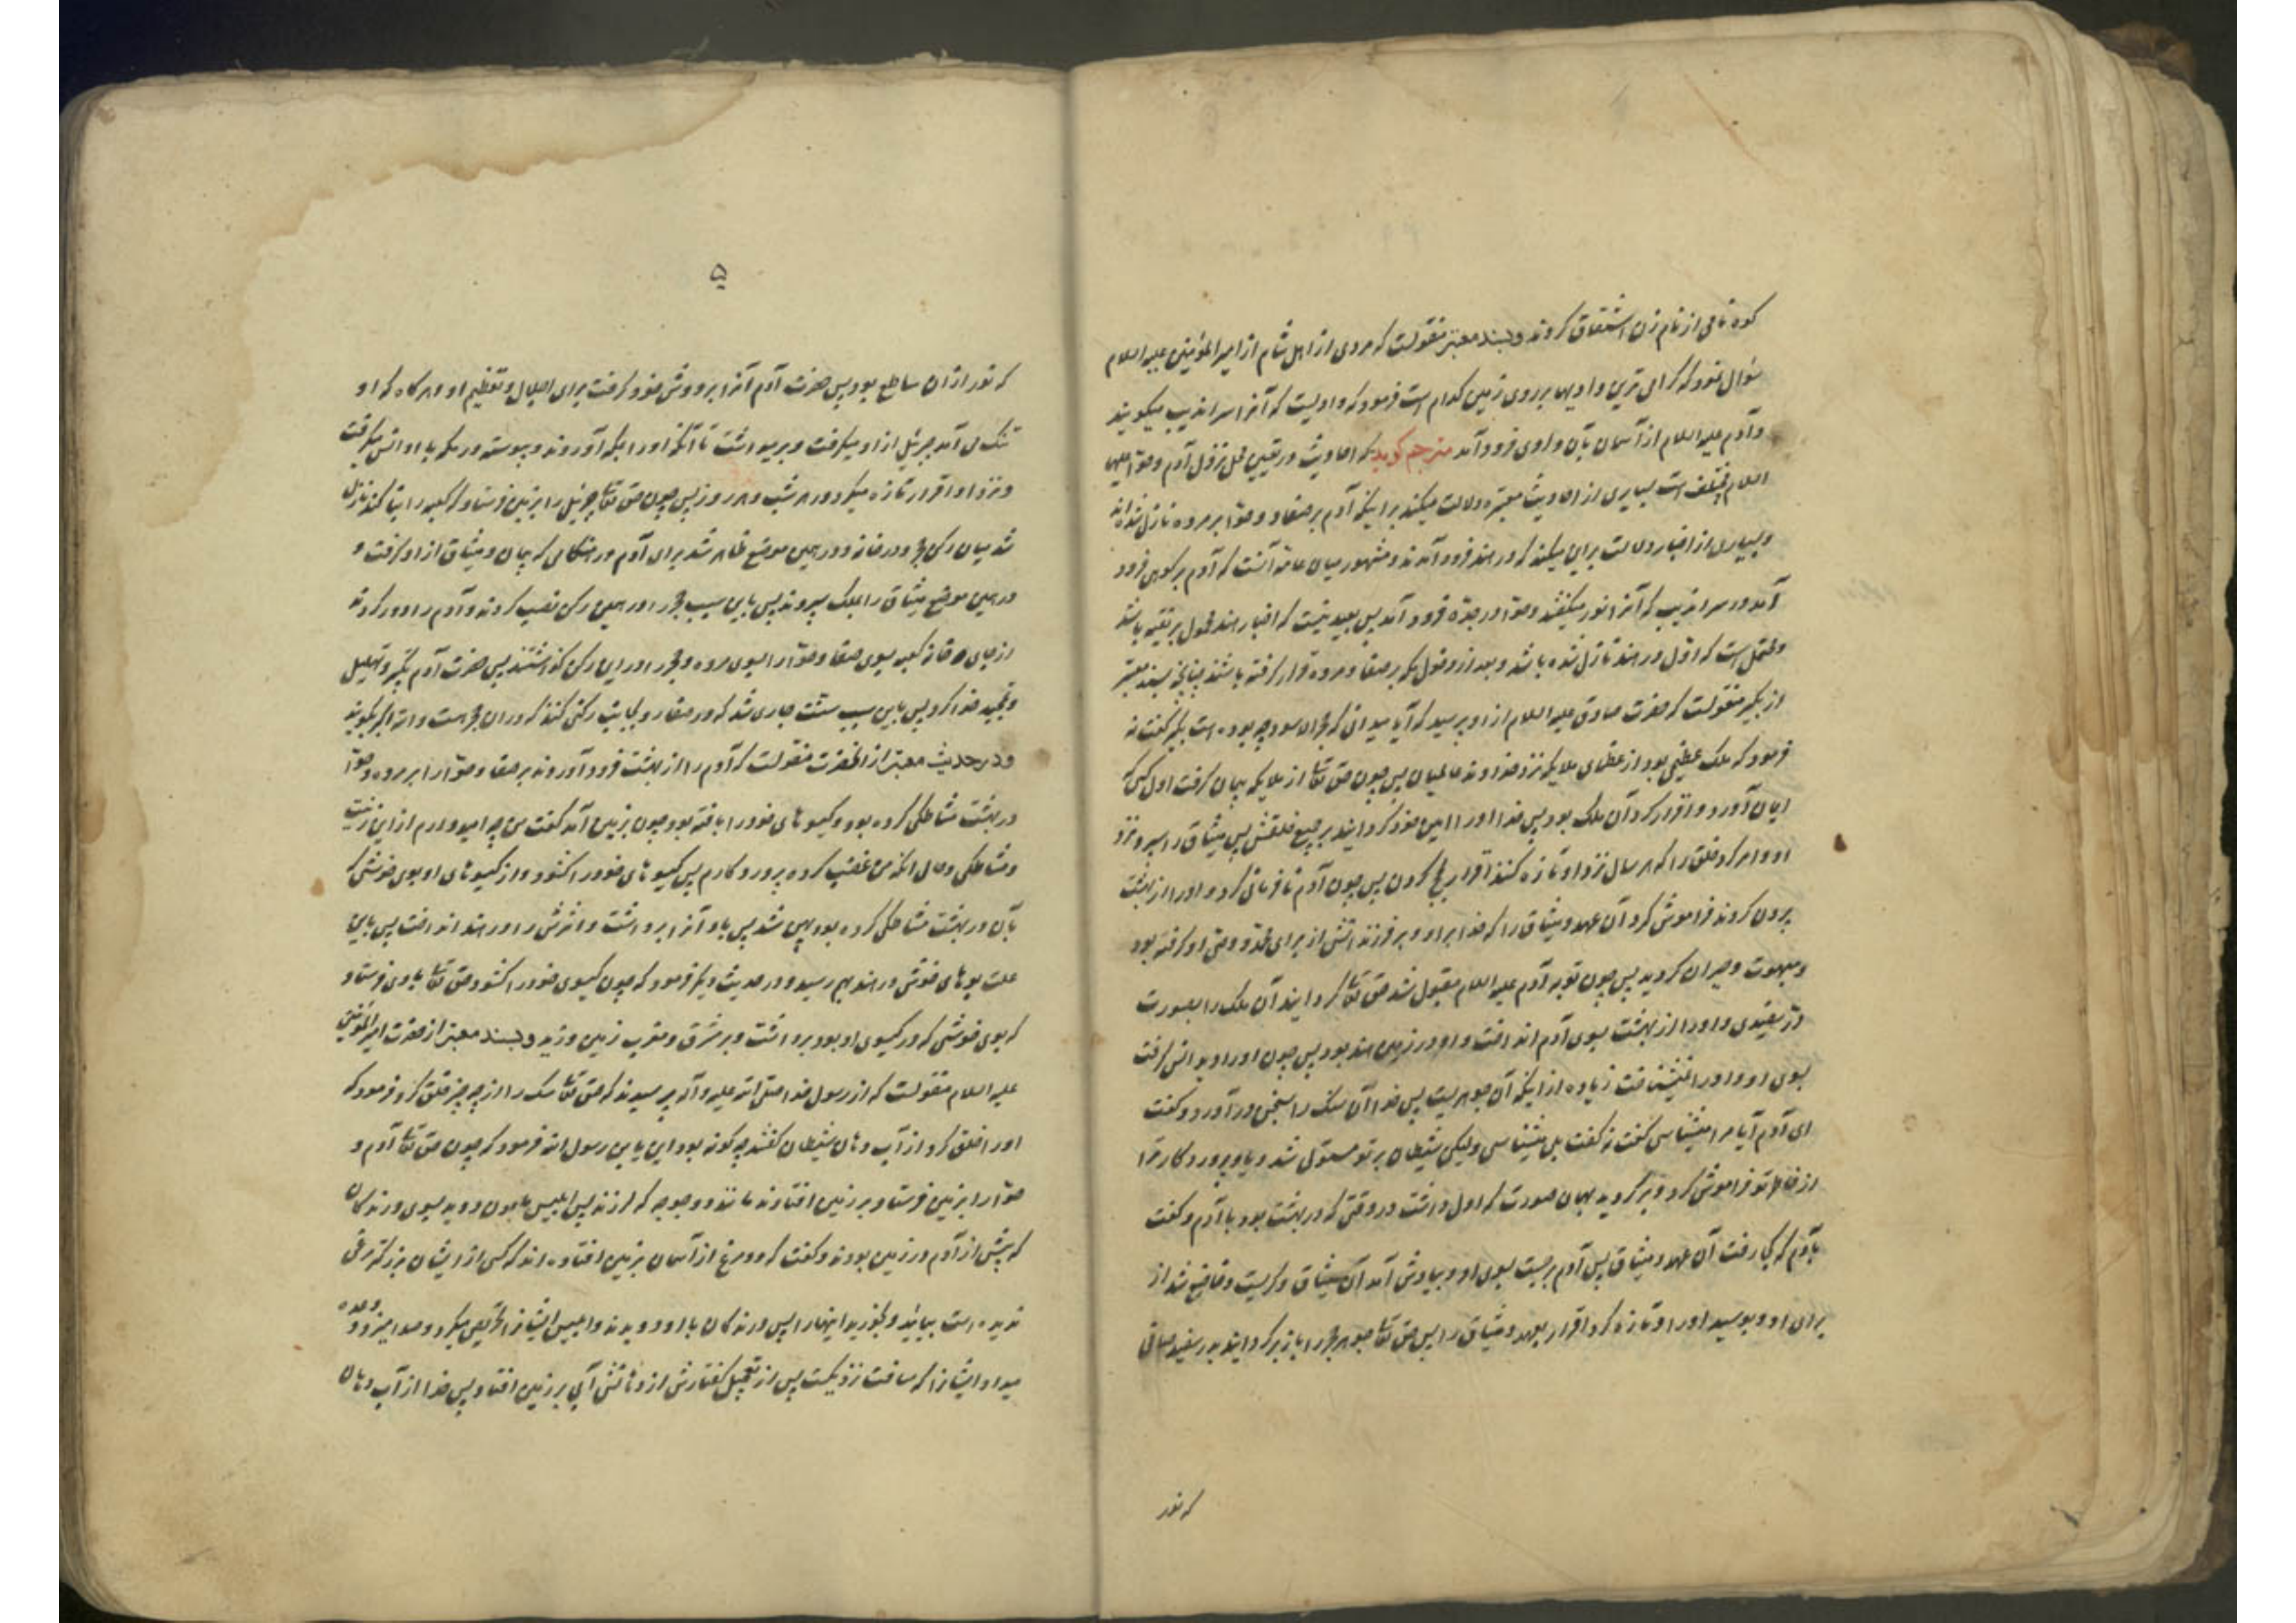 کوه نامی از نام زن اشتقاق کردند و بسند معتبر منقولست که مردی از اهل شام از امیرالمؤمنین علیه السلام
سؤال نمود که گرامی ترین وادیها بر روی زمین کدام است فرمود که وادیست که آنرا سراندیب میگویند
و آدم علیه السلام از آسمان بآن وادی فرود آمد مترجم گوید که احادیث در تعیین محل نزول آدم و حوّا علیهما
السلام مختلف است بسیاری از احادیث معتبره دلالت میکند بر اینکه آدم بر صفا و حوّا بر مروه نازل شده اند
و بسیاری از اخبار دلالت براین میکند که در هند فرود آمدند و مشهور میان عامه آنست که آدم بر کوهی فرود
آمد در سراندیب که آنرا نود میگفتند و حوّا در جدّه فرود آمد پس بعید نیست که اخبار هند محمول بر تقیه باشد
و محتمل است که اوّل در هند نازل شده باشد و بعد از دخول مکه بر صفا و مروه قرار گرفته باشند چنانچه بسند معتبر
از بکیر منقولست که حضرت صادق علیه السلام از او پرسید که آیا میدانی که حجر الاسود چه بوده است بکیر گفت نه
فرمود که ملک عظیمی بود از عظمای ملایکه نزد خداوند عالمیان پس چون حق تعالی از ملایکه پیمان گرفت اول کسی که
ایمان آورد و اقرار کرد آن ملک بود پس خدا او را امین خود گردانید بر جمیع خلقش پس میثاق را سپرد نزد
او و امر کرد خلق را که هر سال نزد او تازه کنند اقرار حج کردن پس چون آدم نافرمانی کرد و او را از بهشت
بیرون کردند فراموش کرد آن عهد و میثاق را که خدا بر او و بر فرزندانش از برای محمّد و وصی او گرفته بود
و مبهوت و حیران گردید پس چون توبه آدم علیه السلام مقبول شد حق تعالی گردانید آن ملک را بصورت
درّ سفیدی و او را از بهشت بسوی آدم انداخت و او در زمین هند بود پس چون او را دید انس گرفت
بسوی او و او را نمیشناخت زیاده از اینکه آن جوهریست پس خدا آن سنگ را بسخن در آورد و گفت
ای آدم آیا مرا میشناسی گفت نه گفت بلی میشناسی ولیکن شیطان بر تو مستولی شد و یاد پروردکار ترا
از خاطر تو فراموش کرد و برگردید بهمان صورت که اول داشت در وقتی که در بهشت بود با آدم و گفت
بآدم که کجا رفت آن عهد و میثاق پس آدم برجست بسوی او و بیادش آمد آن میثاق و گریست و خاضع شد از
برای او و بوسید او را و تازه کرد اقرار بعهد و میثاق را پس حق تعالی جوهر حجر را باز برگردانید بدر سفید صافی
که نور
۵
که نور از آن ساطع بود پس حضرت آدم آنرا بر دوش خود گرفت برای اجلال و تعظیم او و هرگاه که او
تنگ می آمد جبرئیل از او میگرفت و برمیداشت تا آنکه او را بمکه آوردند و پیوسته در مکه با او انس میگرفت
و نزد او اقرار تازه میکرد در هر شب و هر روز پس چون حق تعالی جبرئیل را بزمین فرستاد که کعبه را بنا کند نازل
شد میان رکن حجر و در خانه و در همین موضع ظاهر شد برای آدم در هنگامی که پیمان و میثاق از او گرفت و
در همین موضع میثاق را بملک سپردند پس باین سبب حجر را در همین رکن نصب کردند و آدم را دور کردند
از جای خانه کعبه بسوی صفا و حوّا را بسوی مروه و حجر را در این رکن گذاشتند پس حضرت آدم تکبیر و تهلیل
و تمجید خدا کرد پس باین سبب سنّت جاری شد که در صفا رو بجانب رکنی کنند که در آن حجر است و الله اکبر بگویند
و در حدیث معتبر از آنحضرت منقولست که آدم را از بهشت فرود آوردند بر صفا و حوّا را بر مروه و حوّا
در بهشت مشاطگی کرده بود و گیسوهای خود را بافته بود چون بزمین آمد گفت من چه امید دارم از این زینت
و مشاطگی و حال آنکه من غضب کرده پروردکارم پس گیسوهای خود را گشود و از گیسوهای او بوی خوشی که
بآن در بهشت مشاطگی کرده بود پهن شد پس باد آنرا برداشت و اثرش را در هند انداخت پس باین
علت بوهای خوش در هند بهم رسید و در حدیث دیگر فرمود که چون گیسوی خود را گشود حق تعالی بادی فرستاد
که بوی خوشی که در گیسوی او بود برداشت و بر مشرق و مغرب زمین وزید و بسند معتبر از حضرت امیرالمؤمنین
علیه السلام منقولست که از رسول خدا صلی الله علیه و آله پرسیدند که حق تعالی سگ را از چه چیز خلق کرد فرمود که
او را خلق کرد از آب دهان شیطان گفتند چه گونه بود این یا رسول الله فرمود که چون حق تعالی آدم و
حوّا را بزمین فرستاد بر زمین افتادند مانند دو جوجه که لرزند پس ابلیس ملعون دوید بسوی درندگان
که پیش از آدم در زمین بودند و گفت که دو مرغ از آسمان بزمین افتاده اند که کسی از ایشان بزرگتر مرغی
ندیده است بیائید و بخورید اینها را پس درندگان با او دویدند و ابلیس ایشان را تحریص میکرد و صدا میزد و وعده
میداد ایشان را که مسافت نزدیکست پس از تعجیل گفتارش از دهانش آبی بر زمین افتاد پس خدا از آب دهان